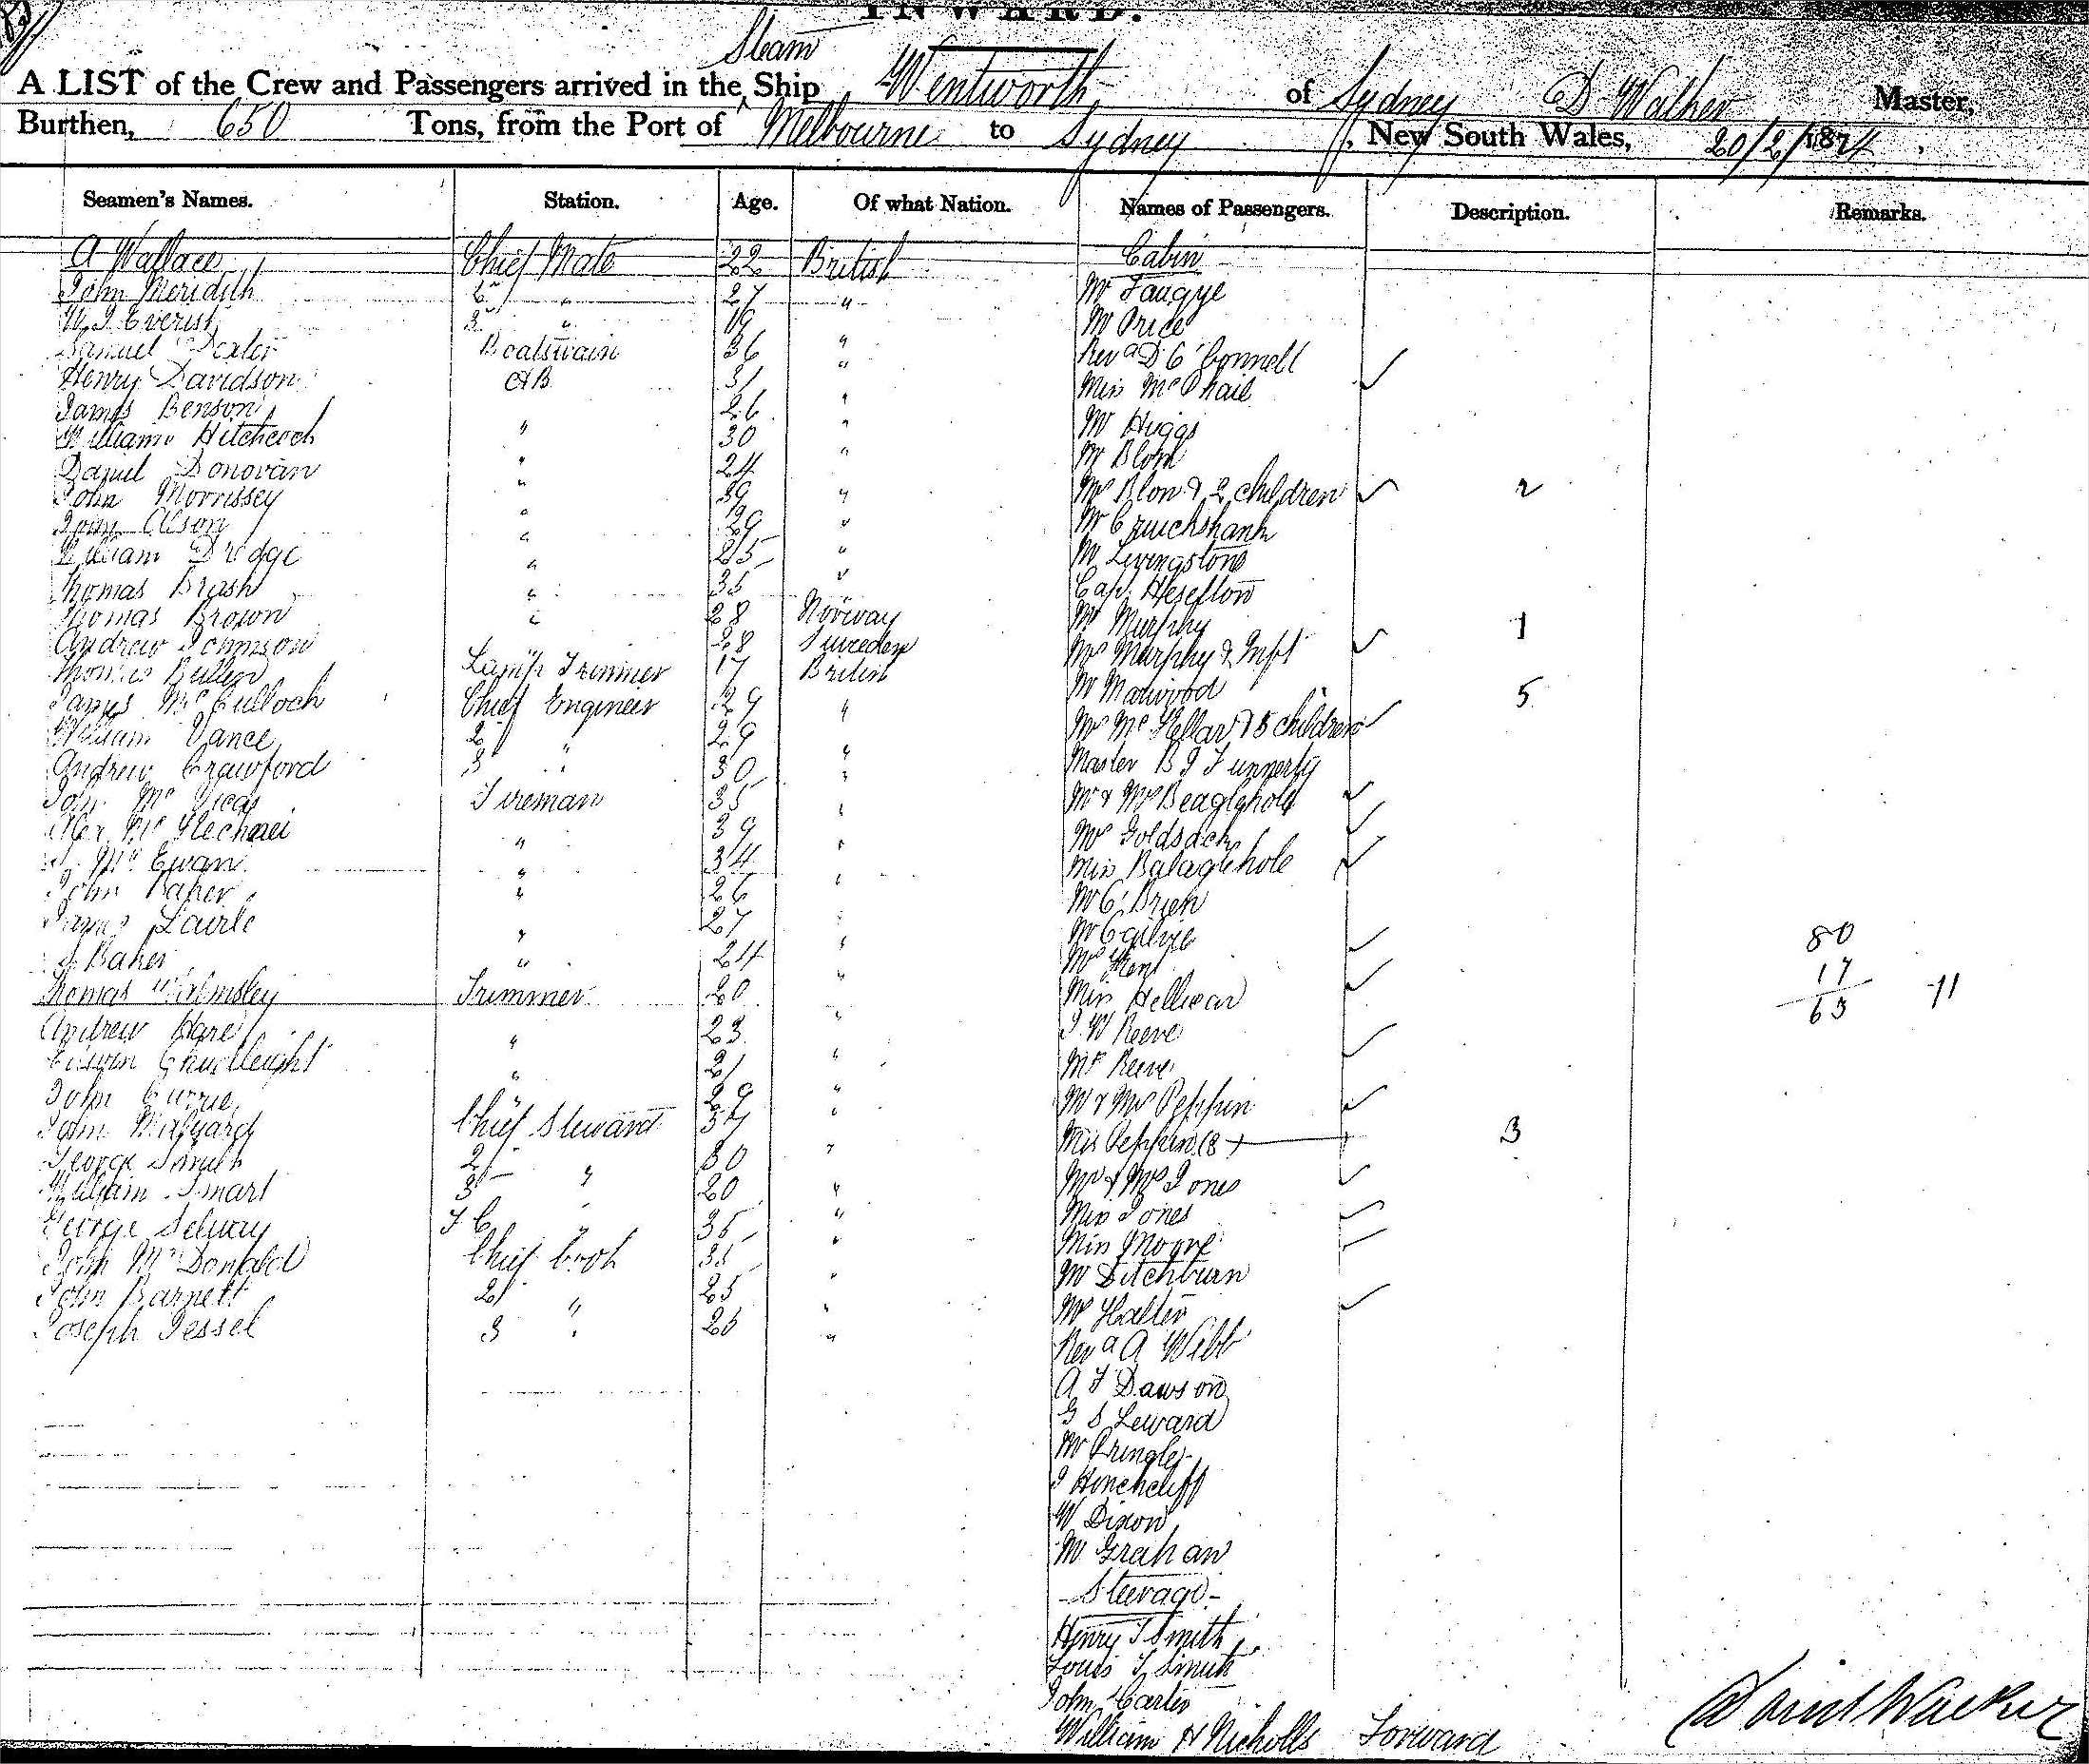 INWARD.
Steam
A LIST of the Crew and Passengers arrived in the Ship Wentworth of Sydney D Walker Master,
Burthen, 650 Tons, from the Port of Melbourne to Sydney, New South Wales, 20/2/1874.
Seamen's Names. Station. Age. Of what Nation. Names of Passengers. Description. Remarks.
A Wallace Chief Mate 22 British Cabin
John Meridith 2 " 27 " Mr
W J Everist 3 " 19 Mr Price
Samuel Dexter Boatswain 36 " Revd D O'Connell
Henry Davidson AB 31 " Miss McPhail
James Benson 26 " Mr Higgs
William Hitchcock " 30 " Mr Blom
Daniel Donovan " 24 " Mrs Blom & 2 children 2
John Morrissey " 39 " Mr Cruickshank
John Olson " 29 " Mr Livingstone
William Dredge " 25 " Cap. Heselton
Thomas Brash " 35 " Mr Murphy
Thomas Brown " 28 Norway Mrs Murphy & Inft 1
Andrew Johnson " 28 Sweden Mr
Thomas Bullen Lamp Trimmer 17 British Mrs McKellar & 5 children 5
James McCulloch Chief Engineer 29 " Master B J Funnerty
William Vance 2 " 29 " Mr & Mrs Beaglehole
Andrew Crawford 3 " 30 " Mrs Goldsack
John McVicar Fireman 35 " Miss Balaglehole
Alex " 39 " Mr O'Brien
McEwan " 34 " Mr Ogilvie
John Baker " 26 " Mrs Kent
James " 27 " Miss Hellicar
J Baker " 24 " J. W Reeve 80
Thomas Walmsley Trimmer 20 " Mrs Reeve 17
Andrew Hare " 23 " Mr & Mrs Peppin 63 11
Edwin Chudleigh " 21 " Miss Peppin (3) 3
John Currie " 29 " Mr & Mrs Jones
John Chief Steward 37 " Miss Jones
George Smith 2 " 30 " Miss Moore
William Smart 3 " 20 " Mr Ditchburn
George Selway F C " 35 " Mrs
John McDonald Chief Cook 35 " Revd A Webb
John Barnett 2 " 25 " A F Dawson
Joseph Jessel 3 " 25 " G S Leward
Mr Pringle
J Hinchcliff
W Dixon
Mr Graham
Steerage
Henry J Smith
Louis J Smith
John Carter
William H Nicholls Forward
David Walker